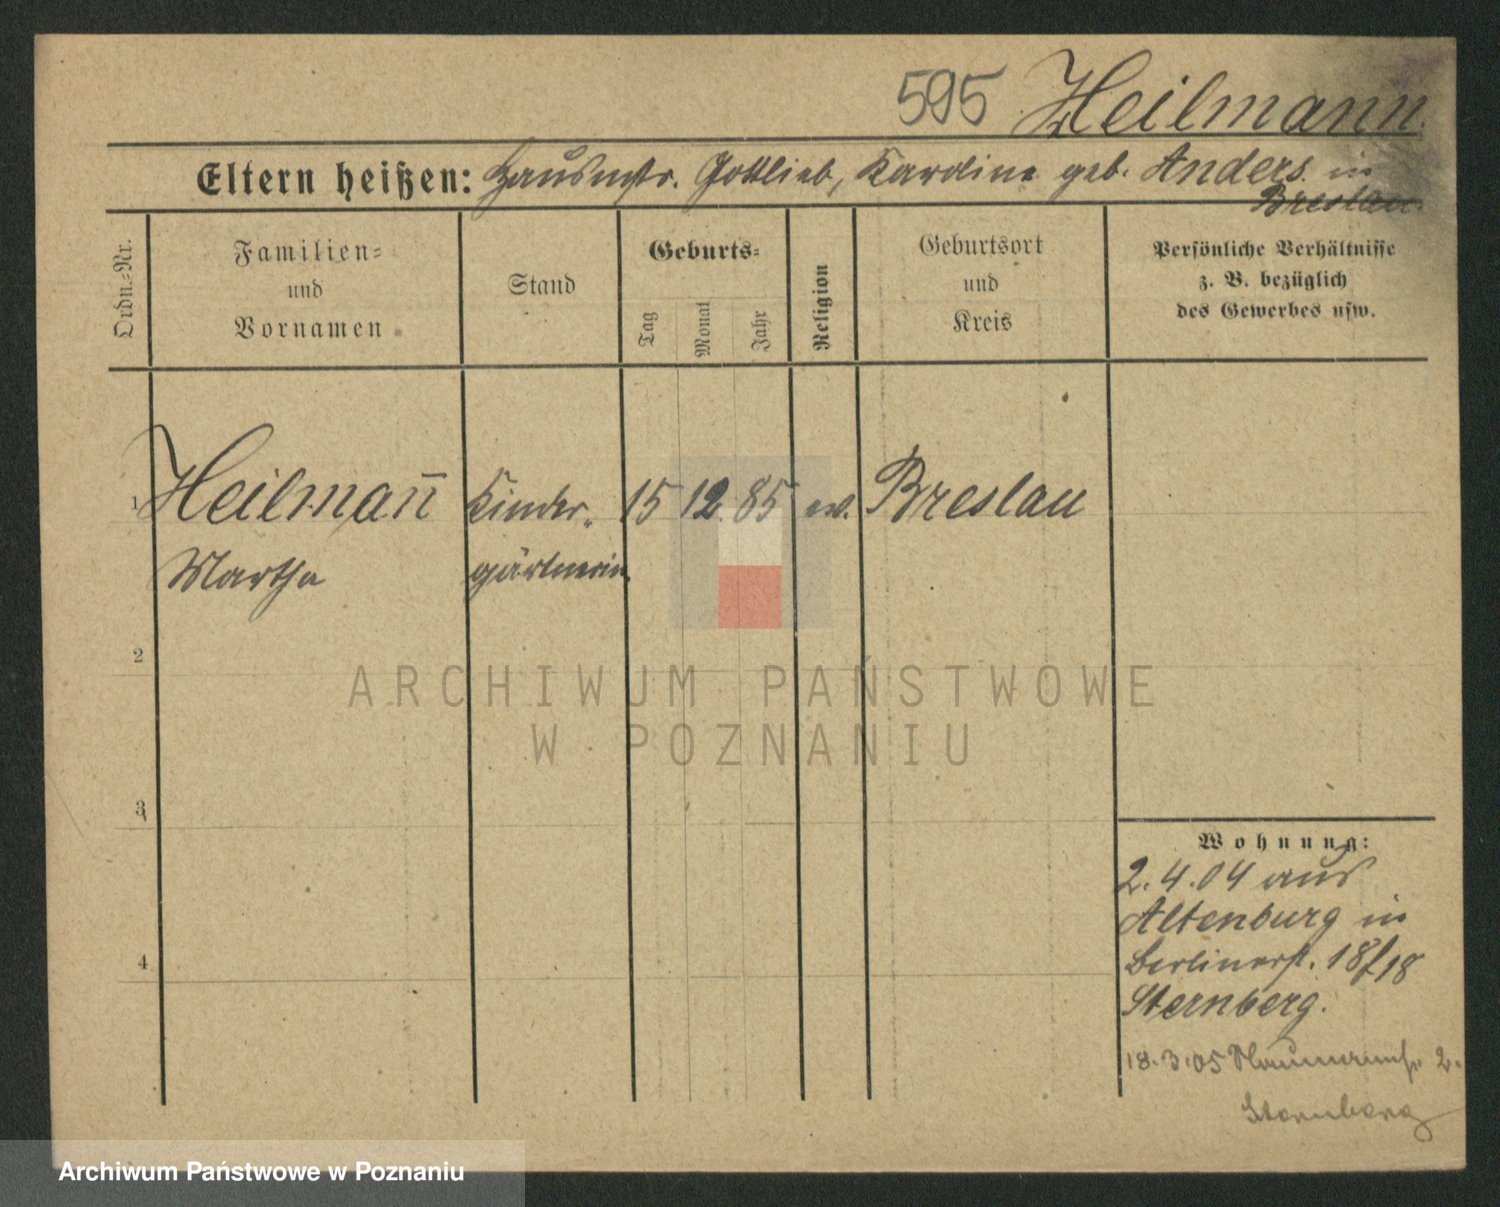 595 Heilmann.
Eltern heißen: Hausmstr. Gottlieb, Karoline geb. Anders in
Breslau.
Ordn.-Nr.
Familien-
und
Vornamen
Stand
Geburts-
Tag
Monat
Jahr
Religion
Geburtsort
und
Kreis
Persönliche Verhältnisse
z. B. bezüglich
des Gewerbes usw.
1 Heilman̄ Kinder- 15 12. 85 ev. Breslau
Martha gärtnerin
2
3
4
Wohnung:
2.4.04 aus
Altenburg in
Berlinerst. 18/18
Sternberg.
18.3.05 Naumannst. 2.
Sternberg
ARCHIWUM PAŃSTWOWE
W POZNANIU
Archiwum Państwowe w Poznaniu